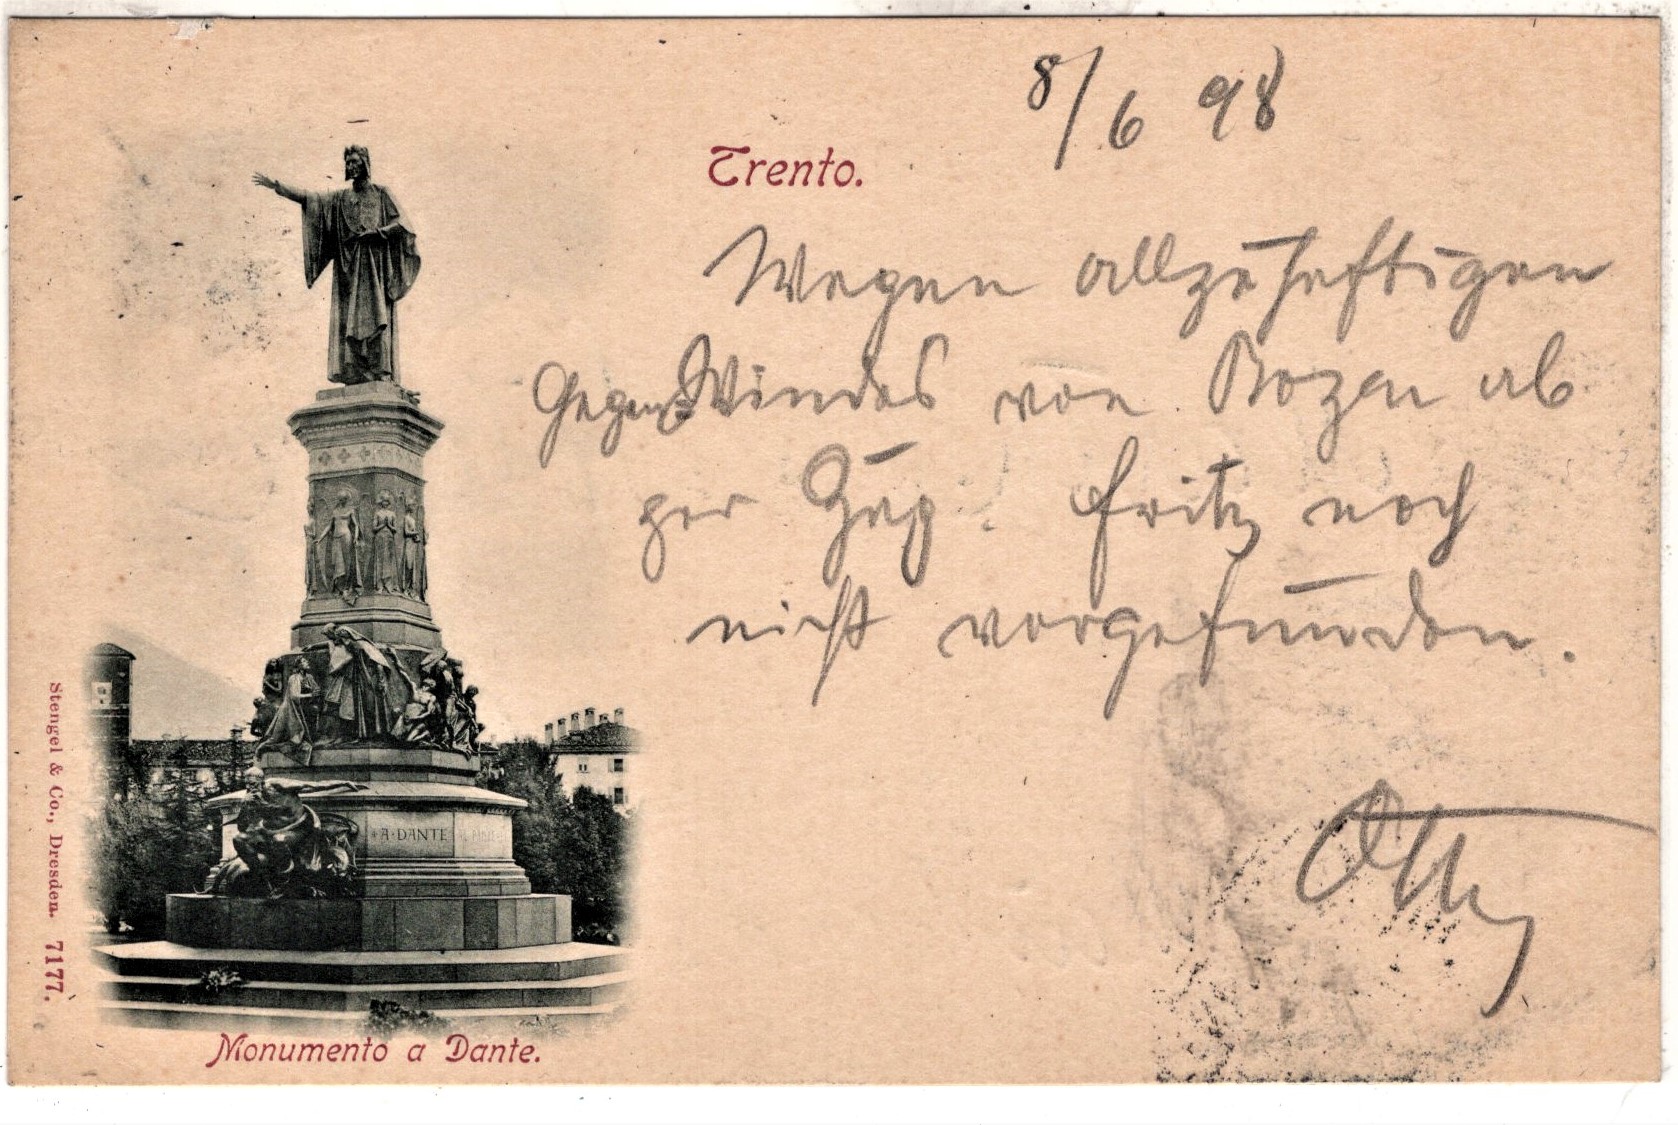 8/6 98
Trento.
Wegen allzuheftigen
GegenWindes von Bozen ab
per Zug. Fritz noch
nicht vorgefunden.
Otto
A·DANTE
Stengel & Co., Dresden. 7177.
Monumento a Dante.